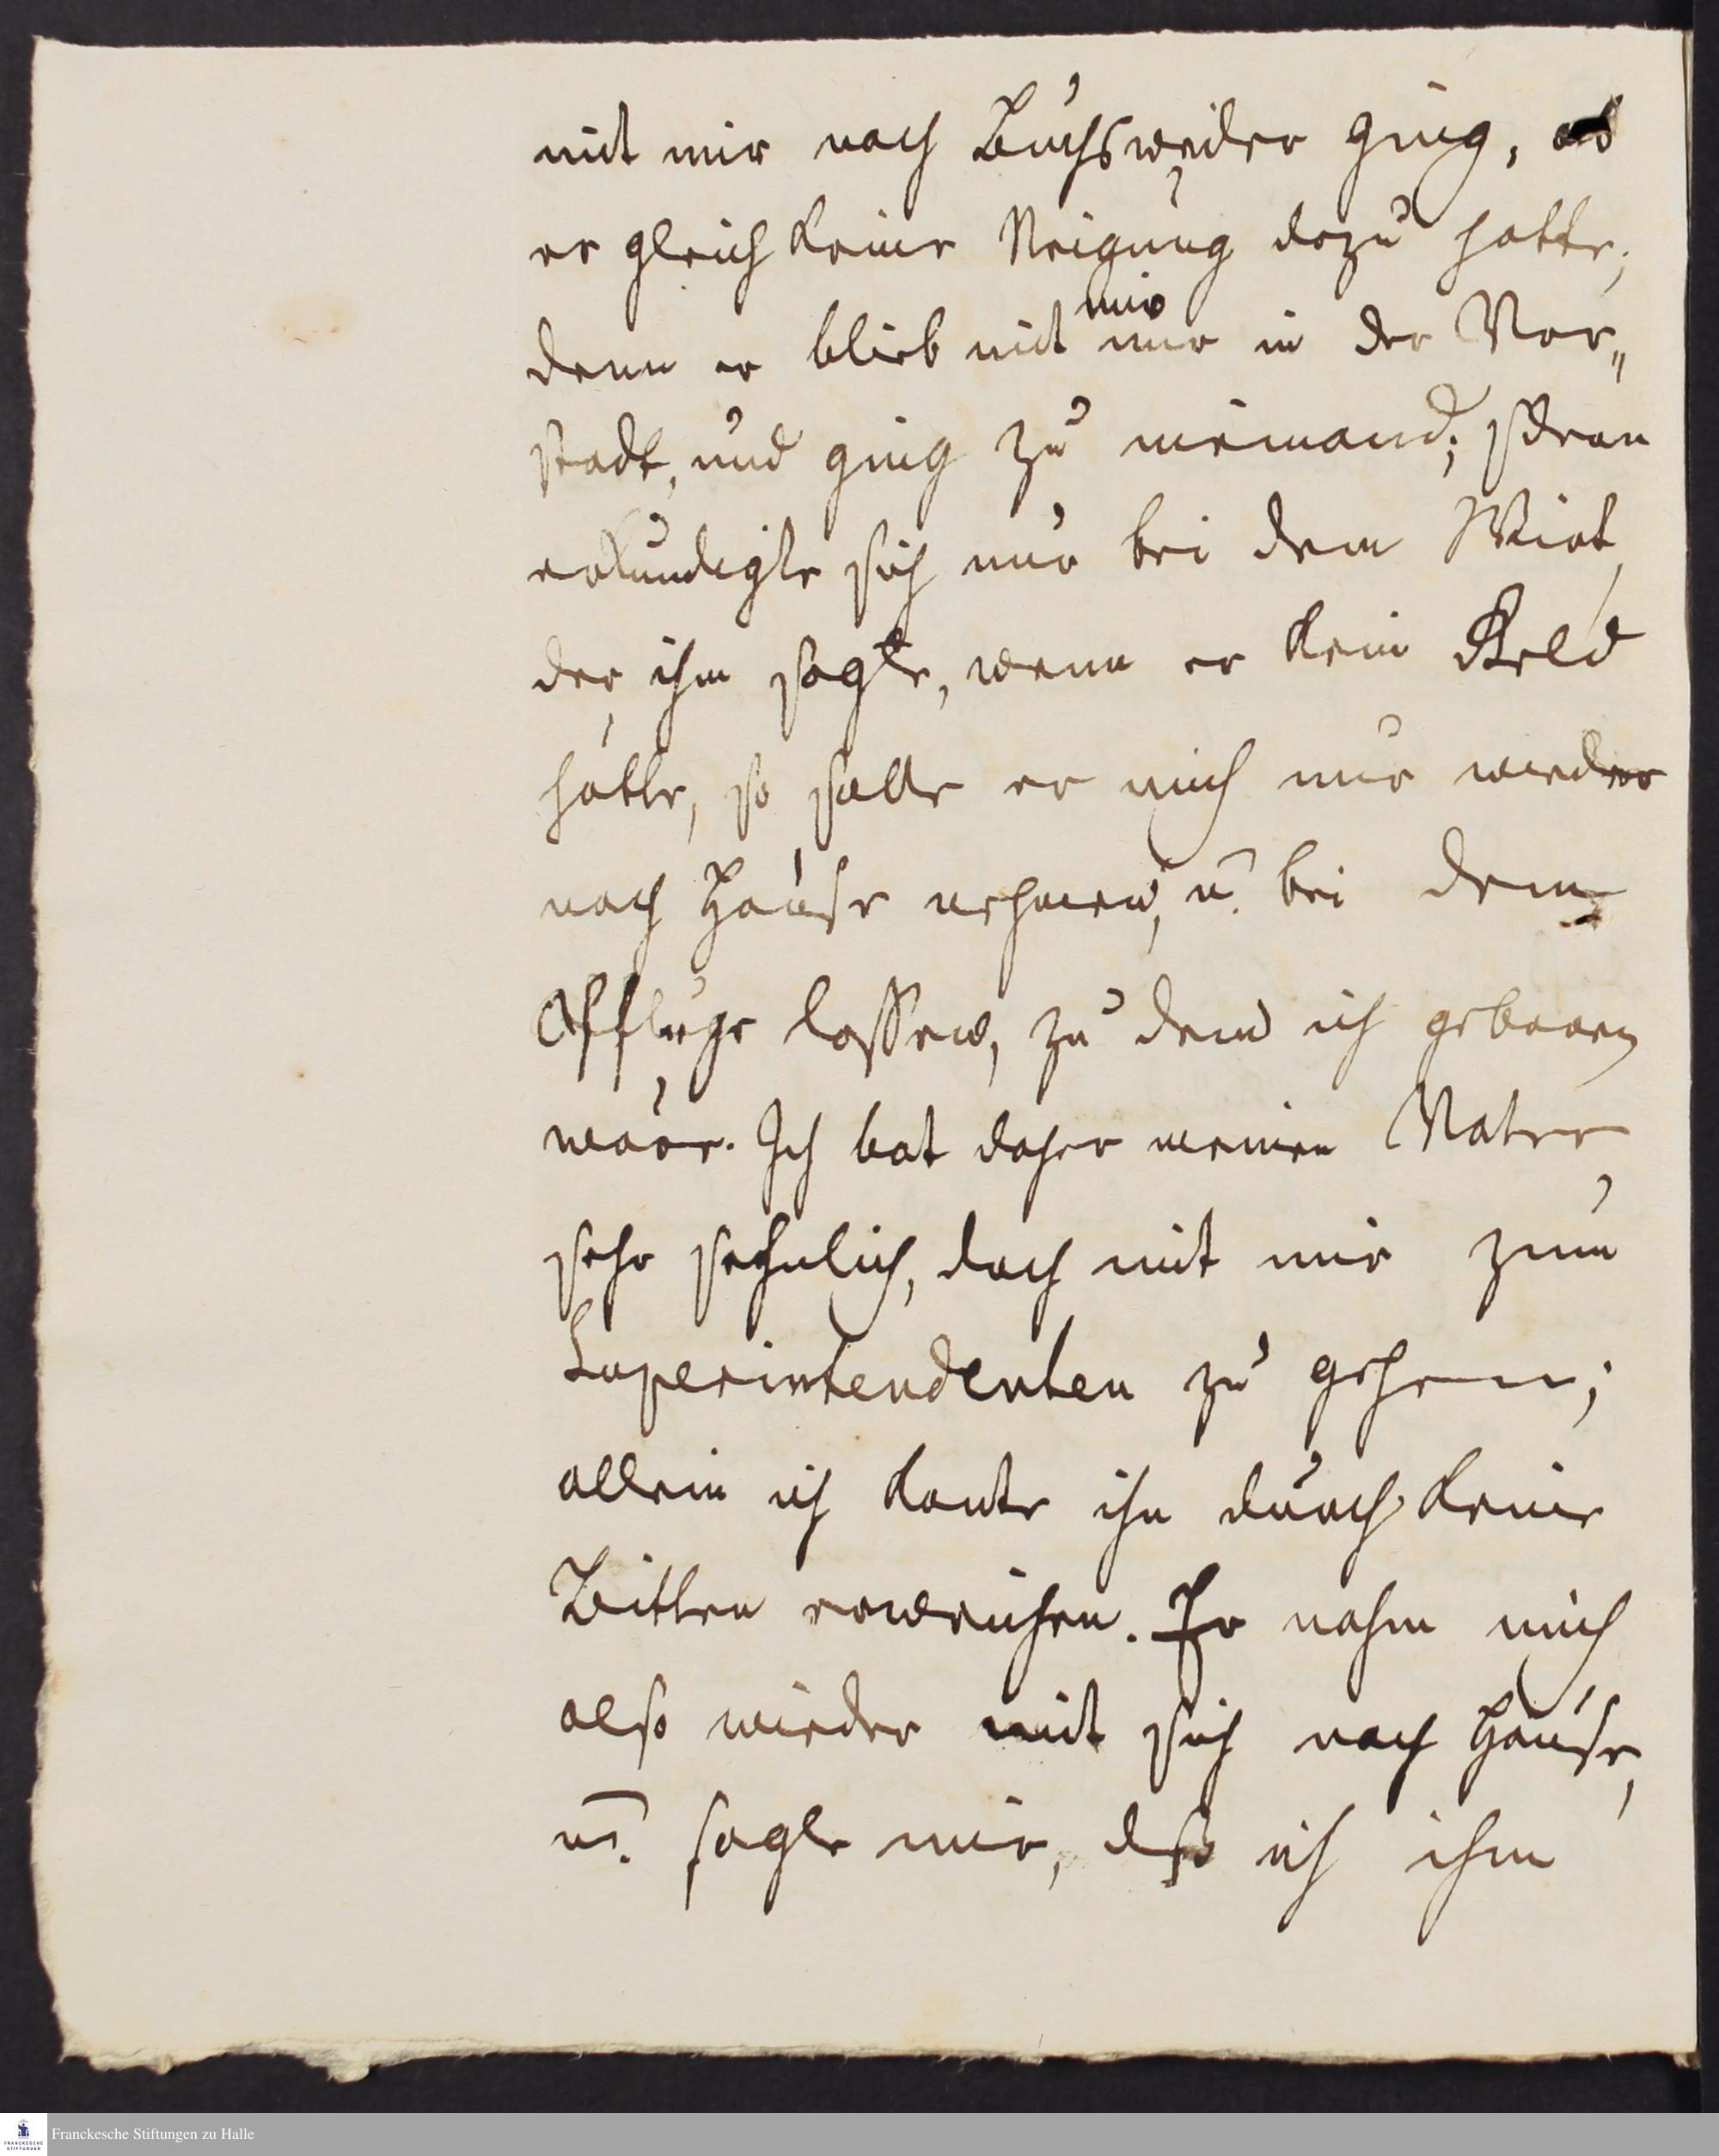 mit mir nach Buchsweiler ging, ob
er gleich keine Neigung dazu hatte;
denn er blieb mit mir nur in der Vor„
stadt, und ging zu niemand; sondern
erkundigte sich nur bei dem Wirt,
der ihm sagte, wenn er kein Geld
hätte, so sollte er mich nur wieder
nach Hause nehmen, u. bei dem
Pfluge lassen, zu dem ich geboren
wäre. Ich bat daher meinen Vater
sehr sehnlich, doch mit mir zum
Superintendenten zu gehen;
allein ich konte ihn durch keine
Bitten erweichen. Er nahm mich
also wieder mit sich nach Hause,
u. sagte mir, daß ich ihm
Franckesche Stiftungen zu Halle